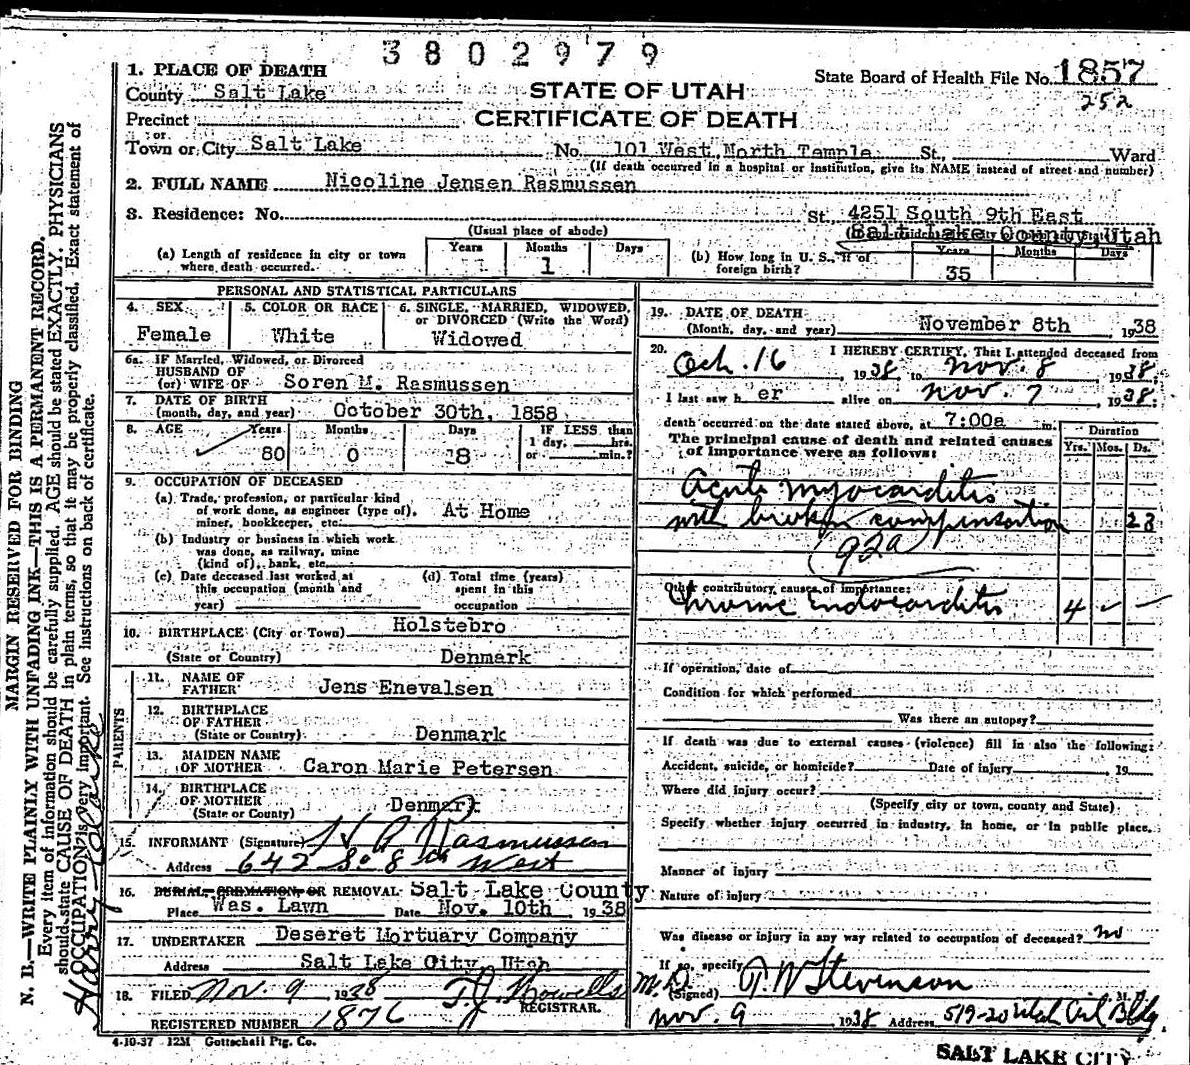 3802979
1. PLACE OF DEATH
State Board of Health File No. 1857
County Salt Lake
STATE OF UTAH
252
Precinct
CERTIFICATE OF DEATH
or
Town or City Salt Lake No. 101 West North Temple St., Ward
(If death occurred in a hospital or institution, give its NAME instead of street and number)
2. FULL NAME Nicoline Jensen Rasmussen
3. Residence: No. St. 4251 South 9th East
(Usual place of abode)
Salt Lake County, Utah
(a) Length of residence in city or town where death occurred. Years Months 1 Days
(b) How long in U. S., if of foreign birth? Years 35 Months Days
PERSONAL AND STATISTICAL PARTICULARS
4. SEX Female
5. COLOR OR RACE White
6. SINGLE, MARRIED, WIDOWED, or DIVORCED (Write the Word) Widowed
6a. IF Married, Widowed, or Divorced
HUSBAND OF
(or) WIFE OF Soren M. Rasmussen
7. DATE OF BIRTH
(month, day, and year) October 30th, 1858
8. AGE Years 80 Months 0 Days 8
IF LESS than
1 day, hrs.
or min.?
9. OCCUPATION OF DECEASED
(a) Trade, profession, or particular kind
of work done, as engineer (type of),
miner, bookkeeper, etc. At Home
(b) Industry or business in which work
was done, as railway, mine
(kind of), bank, etc.
(c) Date deceased last worked at
this occupation (month and
year)
(d) Total time (years)
spent in this
occupation
10. BIRTHPLACE (City or Town) Holstebro
(State or Country) Denmark
PARENTS
11. NAME OF
FATHER Jens Enevalsen
12. BIRTHPLACE
OF FATHER
(State or Country) Denmark
13. MAIDEN NAME
OF MOTHER Caron Marie Petersen
14. BIRTHPLACE
OF MOTHER
(State or Country) Denmark
15. INFORMANT (Signature) H A Rasmussen
Address 642 So 8th West
16. BURIAL, CREMATION, OR REMOVAL Salt Lake County
Place Was. Lawn Date Nov. 10th 1938
17. UNDERTAKER Deseret Mortuary Company
Address Salt Lake City, Utah
18. FILED Nov. 9 1938 T. J. Howells
REGISTRAR.
REGISTERED NUMBER 1876
19. DATE OF DEATH
(Month, day, and year) November 8th, 1938
20. I HEREBY CERTIFY, That I attended deceased from
Oct. 16, 1938, to Nov. 8, 1938.
I last saw h er alive on Nov. 7, 1938.
death occurred on the date stated above, at 7:00a m.
The principal cause of death and related causes
of importance were as follows:
Duration
Yrs. Mos. Ds.
Acute Myocarditis
with broken compensation 23
92a
Other contributory causes of importance:
Chronic Endocarditis 4 — —
If operation, date of
Condition for which performed
Was there an autopsy?
If death was due to external causes (violence) fill in also the following:
Accident, suicide, or homicide? Date of injury, 19
Where did injury occur?
(Specify city or town, county and State)
Specify whether injury occurred in industry, in home, or in public place.
Manner of injury
Nature of injury
Was disease or injury in any way related to occupation of deceased? no
If so, specify
M.D. (Signed) T. W Stevenson
Nov. 9 1938 Address 519-20 Utah Bldg.
SALT LAKE CITY
4-10-37 12M Gottschall Ptg. Co.
MARGIN RESERVED FOR BINDING
N. B.—WRITE PLAINLY WITH UNFADING INK—THIS IS A PERMANENT RECORD.
Every item of information should be carefully supplied. AGE should be stated EXACTLY. PHYSICIANS
should state CAUSE OF DEATH in plain terms, so that it may be properly classified. Exact statement of
OCCUPATION is very important. See instructions on back of certificate.